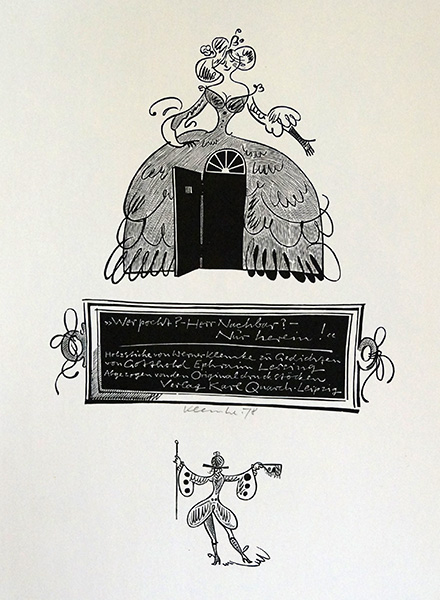 »Wer pocht? - Herr Nachbar? -
Nur herein!«
Holzstiche von Werner Klemke zu Gedichten
von Gotthold Ephraim Lessing
Abgezogen von den Originaldruckstöcken
Verlag Karl Quarch · Leipzig
Klemke 78